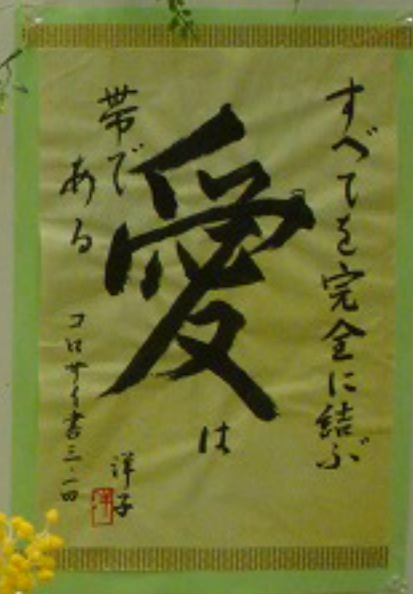 愛は
すべてを完全に結ぶ
帯で
ある
コロサイ書三・一四
洋子
洋